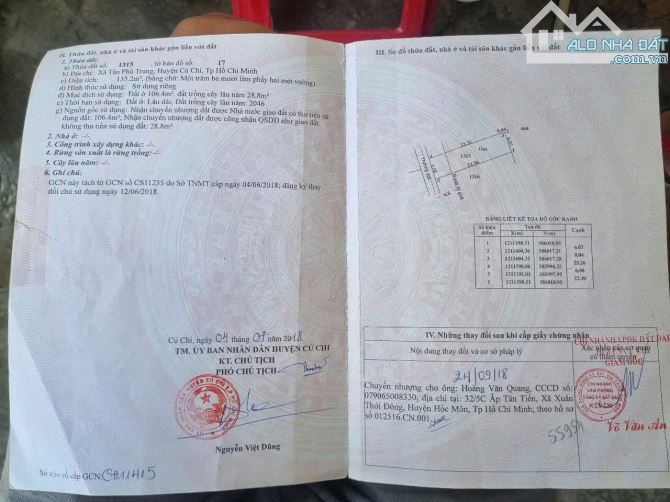 II. Thửa đất, nhà ở và tài sản khác gắn liền với đất
1. Thửa đất:
a) Thửa đất số: 1315 , tờ bản đồ số: 17
b) Địa chỉ: Xã Tân Phú Trung, Huyện Củ Chi, Tp Hồ Chí Minh
c) Diện tích: 135.2m², (bằng chữ: Một trăm ba mươi lăm phẩy hai mét vuông)
d) Hình thức sử dụng: Sử dụng riêng
đ) Mục đích sử dụng: Đất ở 106.4m², đất trồng cây lâu năm 28.8m²
e) Thời hạn sử dụng: Đất ở: Lâu dài; Đất trồng cây lâu năm: 2046
g) Nguồn gốc sử dụng: Nhận chuyển nhượng đất được Nhà nước giao đất có thu tiền sử
dụng đất: 106.4m²; Nhận chuyển nhượng đất được công nhận QSDĐ như giao đất
không thu tiền sử dụng đất: 28.8m²
2. Nhà ở: -/-
3. Công trình xây dựng khác: -/-
4. Rừng sản xuất là rừng trồng: -/-
5. Cây lâu năm: -/-
6. Ghi chú:
GCN này tách từ GCN số CS11235 do Sở TNMT cấp ngày 04/06/2018; đăng ký thay
đổi chủ sử dụng ngày 12/06/2018.
Củ Chi, ngày 04 tháng 07 năm 2018
TM. ỦY BAN NHÂN DÂN HUYỆN CỦ CHI
KT. CHỦ TỊCH
PHÓ CHỦ TỊCH
Nguyễn Việt Dũng
Số vào sổ cấp GCN: CH11415
ALO NHÀ ĐẤT
III. Sơ đồ thửa đất, nhà ở và tài sản khác gắn liền với đất
1315
1316
BẢNG LIỆT KÊ TỌA ĐỘ GÓC RANH
Số hiệu điểm Tọa độ Cạnh
X(m) Y(m)
IV. Những thay đổi sau khi cấp giấy chứng nhận
Nội dung thay đổi và cơ sở pháp lý
Xác nhận của cơ quan
có thẩm quyền
24/09/18
Chuyển nhượng cho ông: Hoàng Văn Quang, CCCD số:
079065008330, địa chỉ tại: 32/5C Ấp Tân Tiến, Xã Xuân
Thới Đông, Huyện Hóc Môn, Tp Hồ Chí Minh; theo hồ sơ
số 012516.CN.001
55954
GIÁM ĐỐC
CHI NHÁNH
VĂN PHÒNG
ĐĂNG KÝ ĐẤT ĐAI
H. CỦ CHI
Võ Văn An